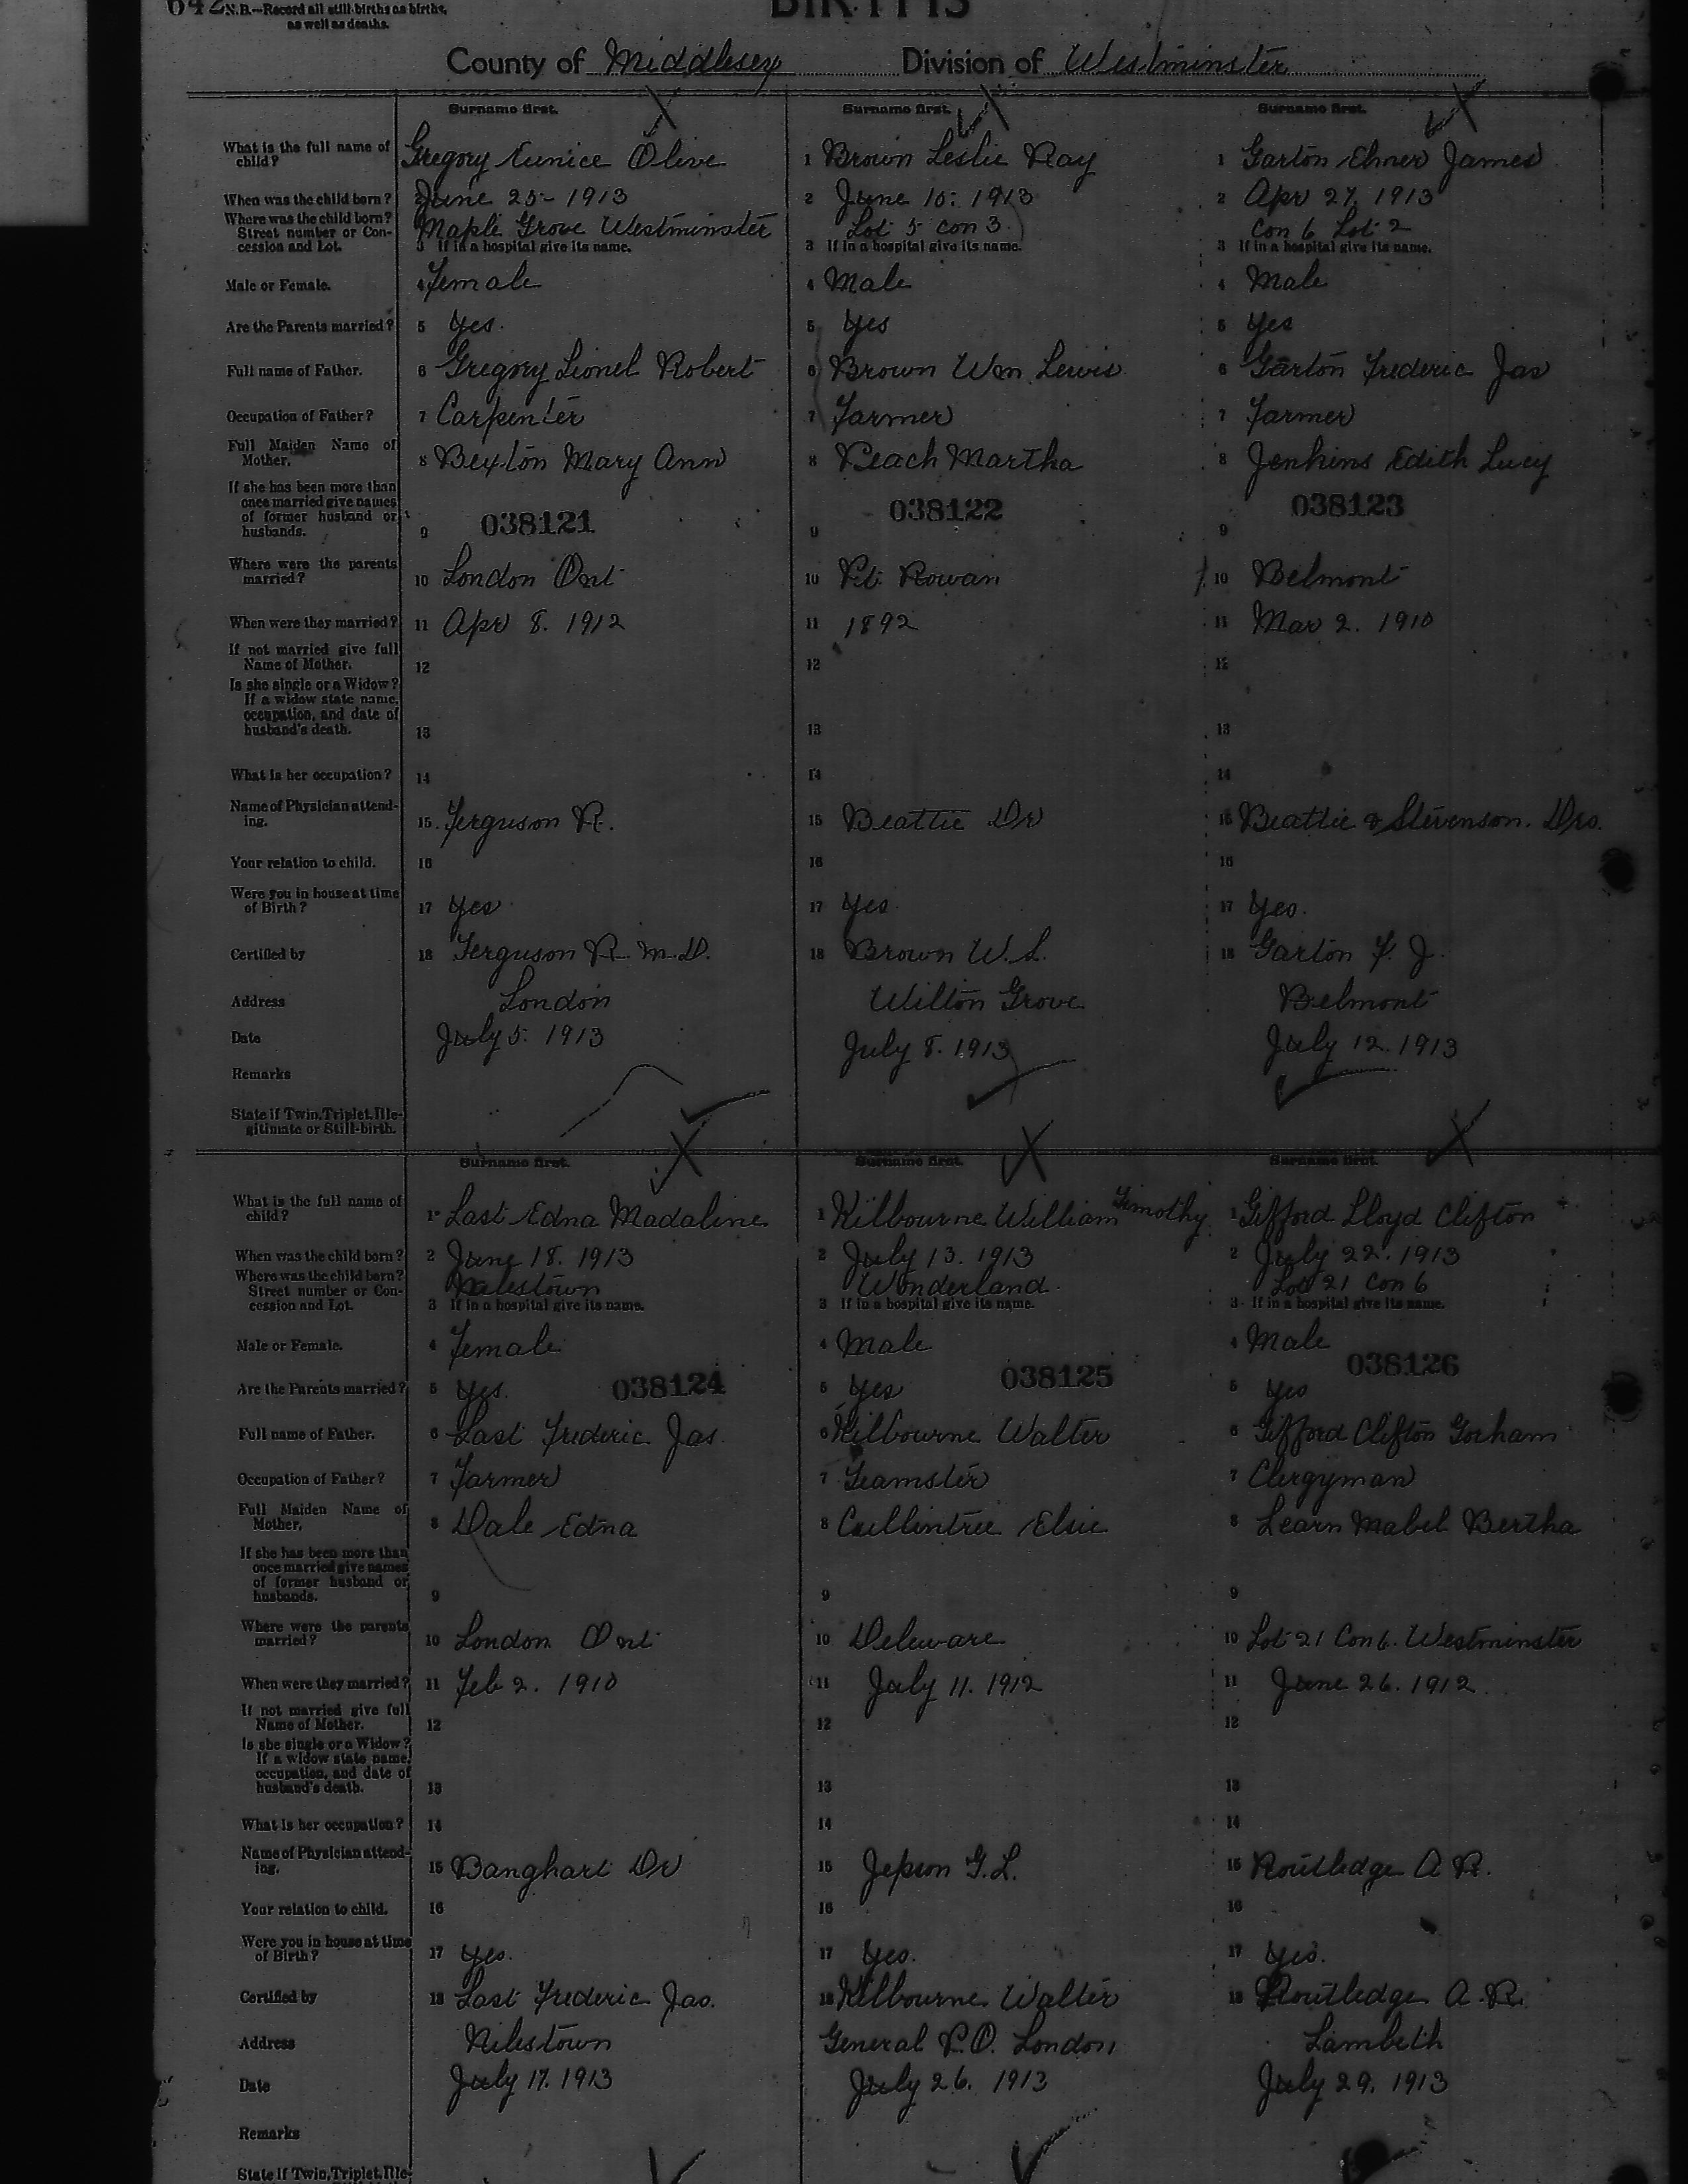 642 N.B.—Record all still-births as births,
as well as deaths.
BIRTHS
County of Middlesex Division of Westminster
Surname first. Surname first. Surname first.
What is the full name of child? Gregory Eunice Olive 1 Brown Leslie Ray 1 Garton Elmer James
When was the child born? 2 June 25- 1913 2 June 10: 1913 2 Apr 27, 1913
Where was the child born? Street number or Concession and Lot. Maple Grove Westminster Lot 5 con 3. Con 6 Lot 2
3 If in a hospital give its name. 3 If in a hospital give its name. 3 If in a hospital give its name.
Male or Female. 4 Female 4 Male 4 Male
Are the Parents married? 5 Yes. 5 Yes 5 Yes
Full name of Father. 6 Gregory Lionel Robert 6 Brown Wm Lewis 6 Garton Frederic Jas
Occupation of Father? 7 Carpenter 7 Farmer 7 Farmer
Full Maiden Name of Mother, 8 Bexton Mary Ann 8 Beach Martha 8 Jenkins Edith Lucy
If she has been more than once married give names of former husband or husbands. 9 038121 9 038122 9 038123
Where were the parents married? 10 London Ont 10 Pt. Rowan 10 Belmont
When were they married? 11 Apr 8. 1912 11 1892 11 Mar 2. 1910
If not married give full Name of Mother. 12 12 12
Is she single or a Widow? If a widow state name, occupation, and date of husband's death. 13 13 13
What is her occupation? 14 14 14
Name of Physician attending. 15. Ferguson R. 15 Beattie Dr 15 Beattie & Stevenson. Drs.
Your relation to child. 16 16 16
Were you in house at time of Birth? 17 Yes 17 Yes. 17 Yes.
Certified by 18 Ferguson R. M.D. 18 Brown W. L. 18 Garton F. J.
Address London Wilton Grove Belmont
Date July 5. 1913 July 8. 1913 July 12. 1913
Remarks
State if Twin, Triplet, Illegitimate or Still-birth.
Surname first. Surname first. Surname first.
What is the full name of child? 1 Last Edna Madaline 1 Kilbourne William Timothy 1 Gifford Lloyd Clifton
When was the child born? 2 June 18. 1913 2 July 13. 1913 2 July 22. 1913
Where was the child born? Street number or Concession and Lot. Nilestown Wonderland. Lot 21 Con 6
3 If in a hospital give its name. 3 If in a hospital give its name. 3 If in a hospital give its name.
Male or Female. 4 Female. 4 Male 4 Male
Are the Parents married? 5 Yes. 038124 5 Yes 038125 5 Yes 038126
Full name of Father. 6 Last Frederic Jas. 6 Kilbourne Walter 6 Gifford Clifton Gorham
Occupation of Father? 7 Farmer 7 Teamster 7 Clergyman
Full Maiden Name of Mother, 8 Dale Edna 8 Cullintree Elsie 8 Learn Mabel Bertha
If she has been more than once married give names of former husband or husbands. 9 9 9
Where were the parents married? 10 London Ont 10 Deleware 10 Lot 21 Con 6. Westminster
When were they married? 11 Feb 2. 1910 11 July 11. 1912 11 June 26. 1912
If not married give full Name of Mother. 12 12 12
Is she single or a Widow? If a widow state name, occupation, and date of husband's death. 13 13 13
What is her occupation? 14 14 14
Name of Physician attending. 15 Banghart Dr 15 Jepson G. L. 15 Routledge A R.
Your relation to child. 16 16 16
Were you in house at time of Birth? 17 Yes. 17 Yes. 17 Yes.
Certified by 18 Last Frederic Jas. 18 Kilbourne Walter 18 Routledge A. R.
Address Nilestown General P.O. London Lambeth
Date July 17. 1913 July 26. 1913 July 29. 1913
Remarks
State if Twin, Triplet, Ille-